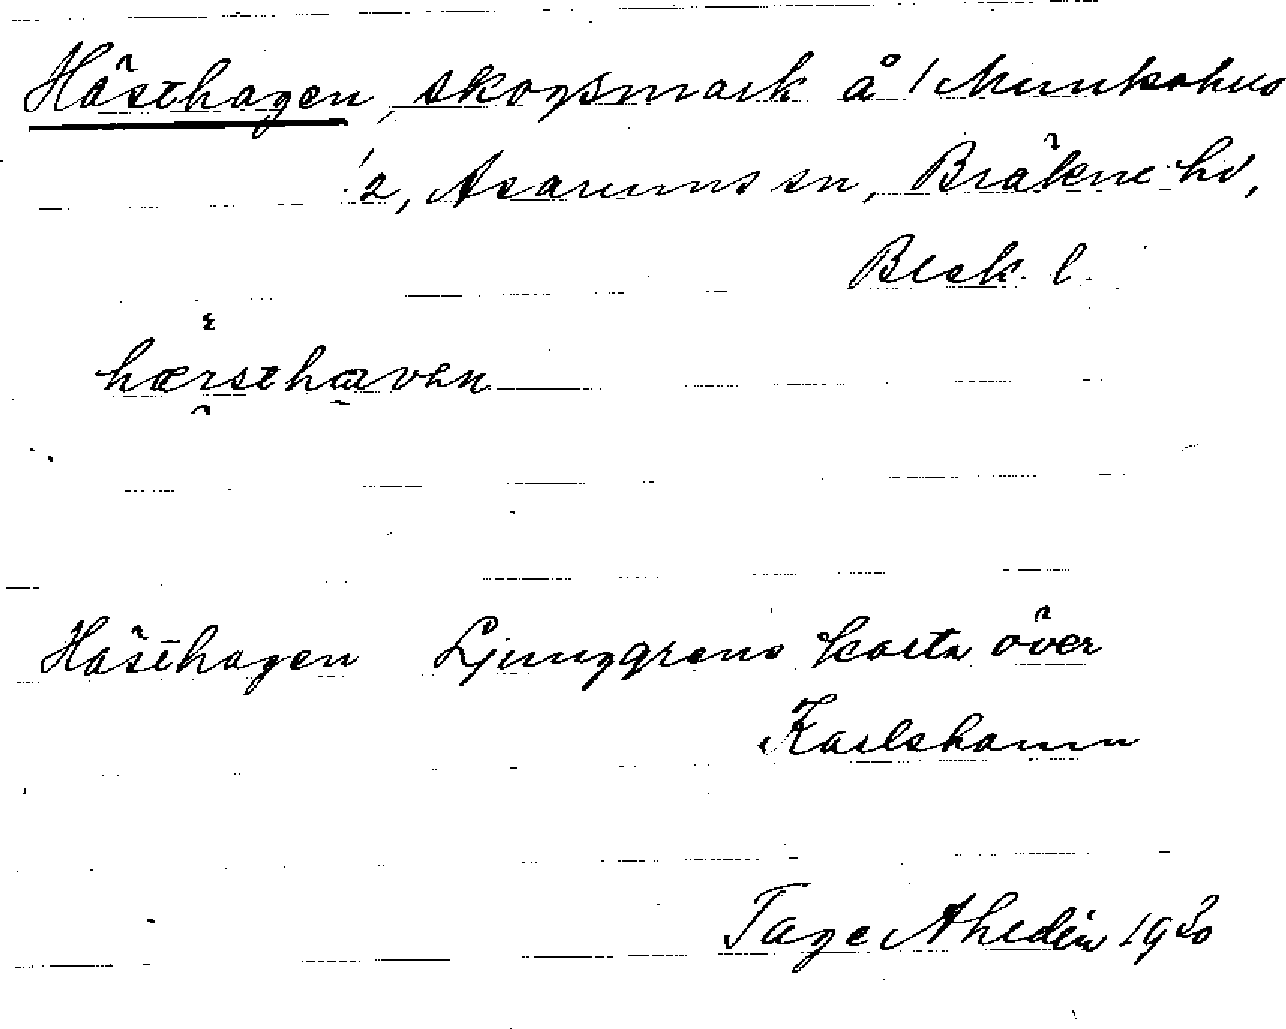 Hästhagen, skogsmark å 1 Munkahus
2, Asarums sn, Bräkne hd,
Blek. l.
hæsthavən
Hästhagen Ljunggrens karta över
Karlshamn
Tage Ahldén 1930